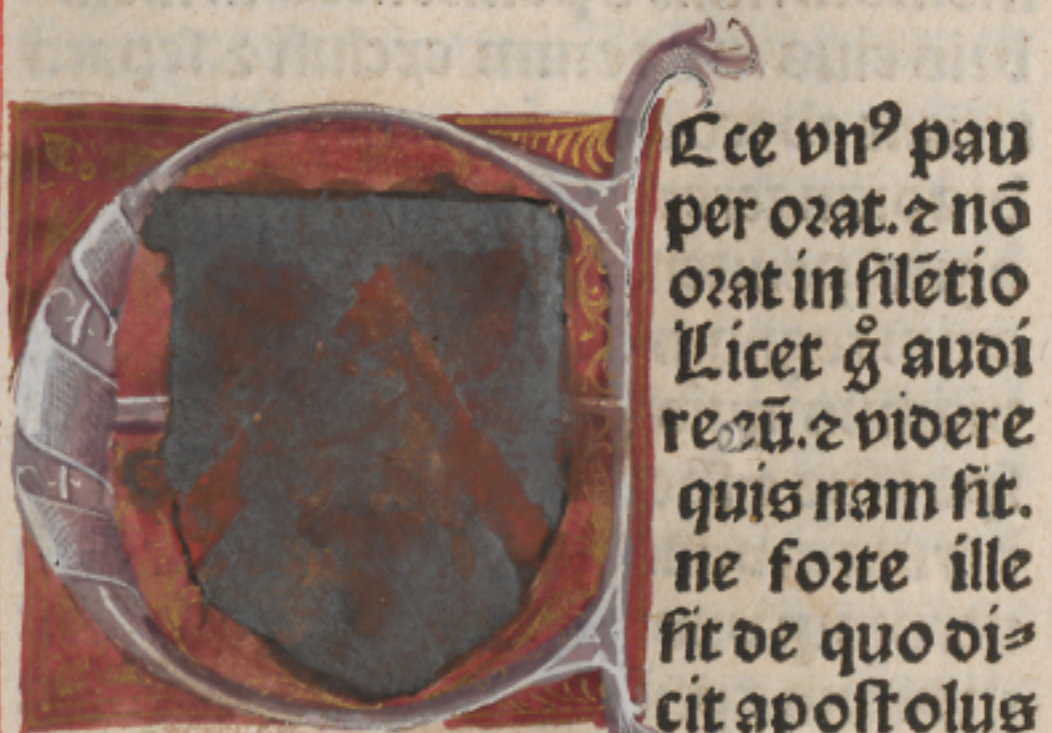 Ecce vnꝰ pau
per orat. ⁊ nō
orat in silētio
Licet gͦ audi
re eū. ⁊ videre
quis nam sit.
ne forte ille
sit de quo di⸗
cit apostolus